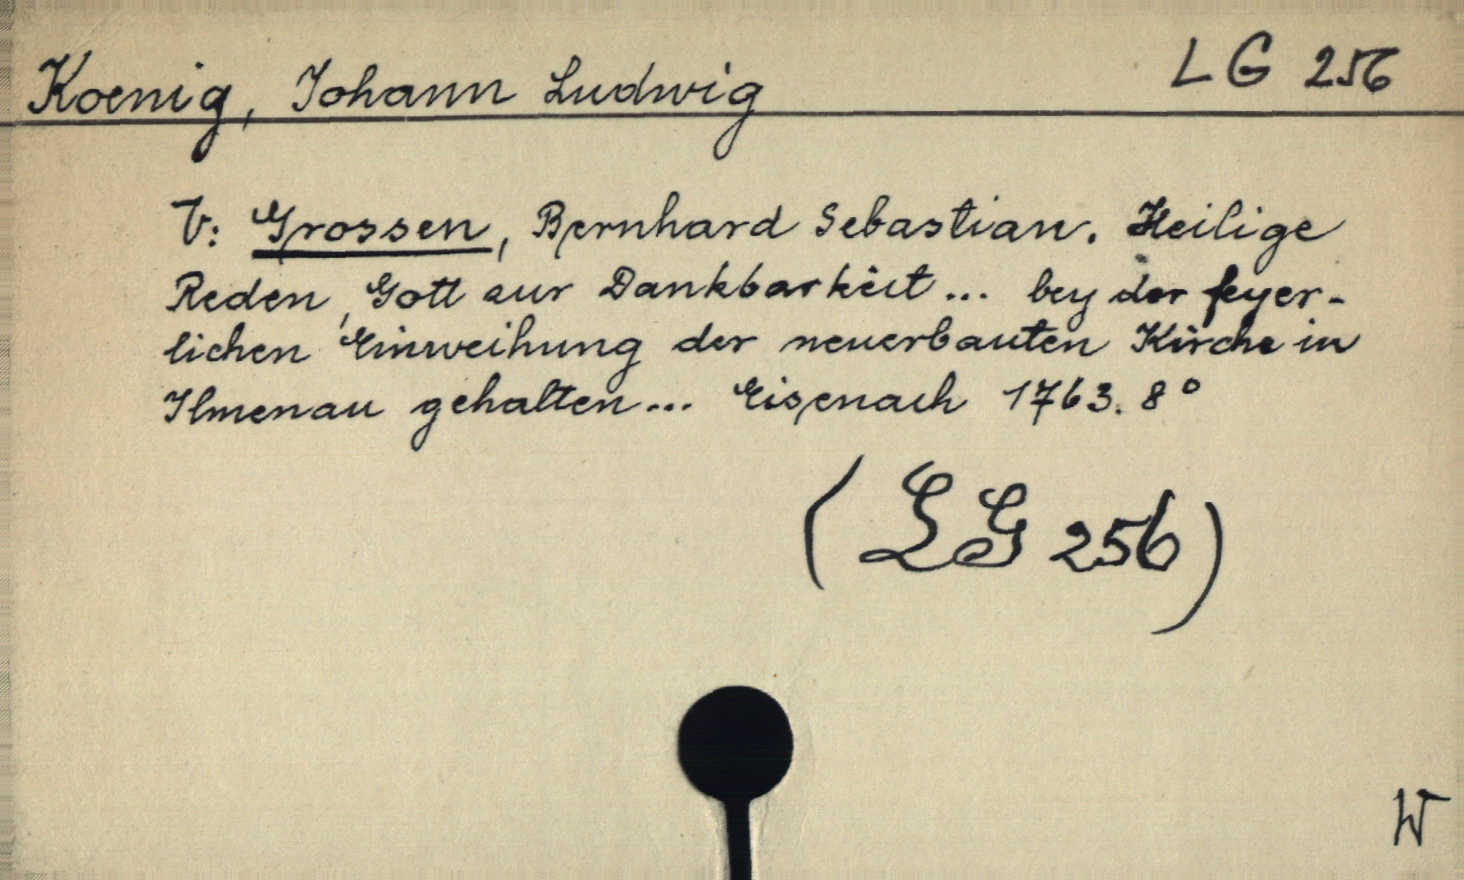 Koenig, Johann Ludwig LG 256
V: Grossen, Bernhard Sebastian. Heilige
Reden, Gott zur Dankbarkeit... bey der feyer-
lichen Einweihung der neuerbauten Kirche in
Ilmenau gehalten... Eisenach 1763. 8°
(LG 256)
W